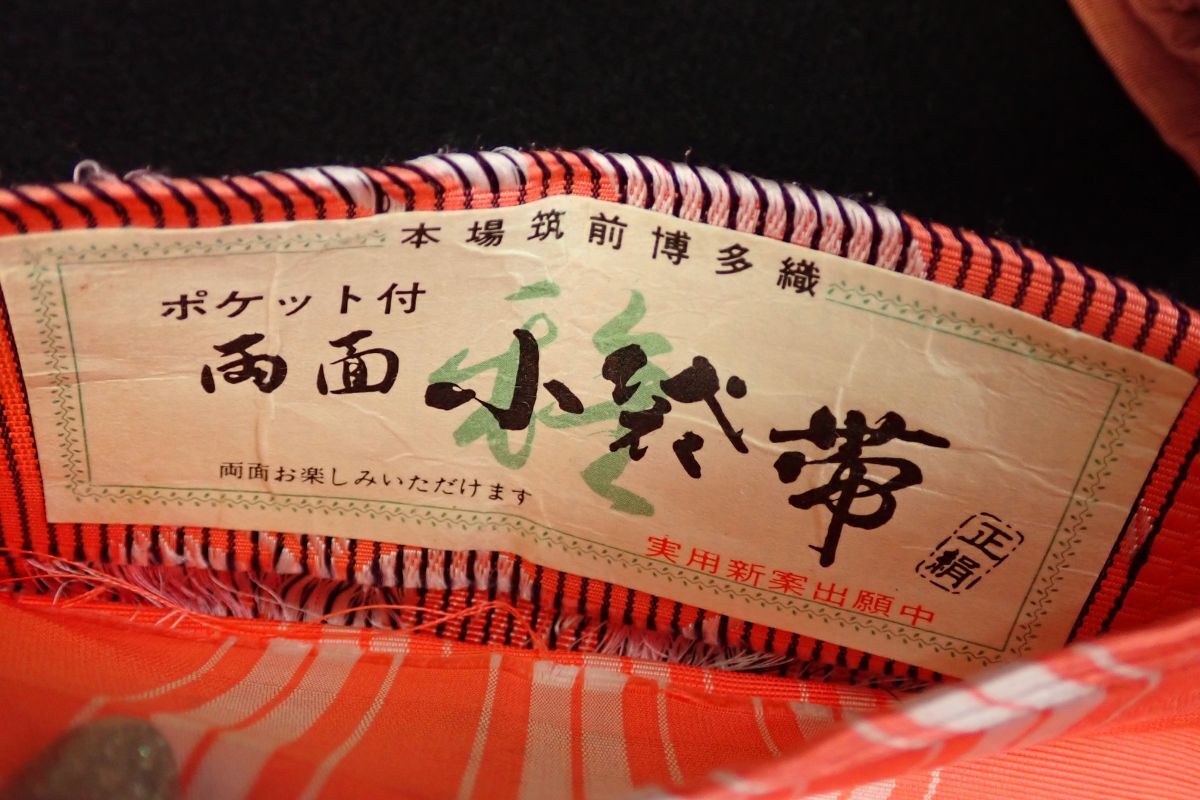 本場筑前博多織
ポケット付
両面小袋帯
両面お楽しみいただけます
実用新案出願中
正絹